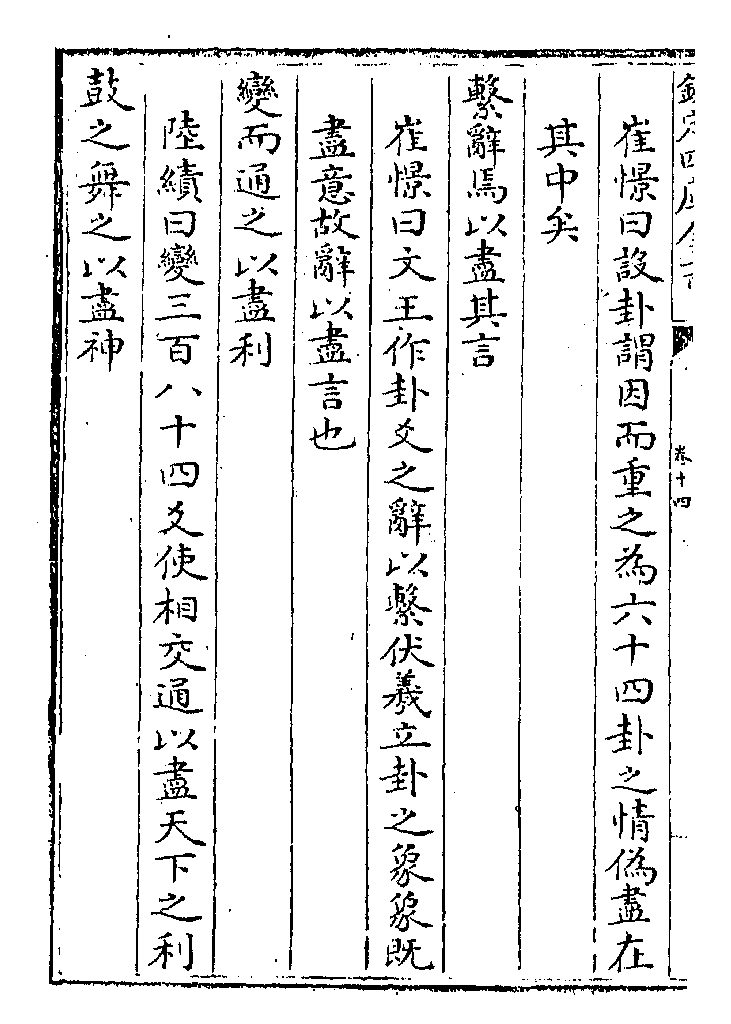 欽定四庫全書
卷十四
崔憬曰設卦謂因而重之為六十四卦之情偽盡在
其中矣
繫辭焉以盡其言
崔憬曰文王作卦爻之辭以繫伏羲立卦之象象既
盡意故辭以盡言也
變而通之以盡利
陸績曰變三百八十四爻使相交通以盡天下之利
鼓之舞之以盡神